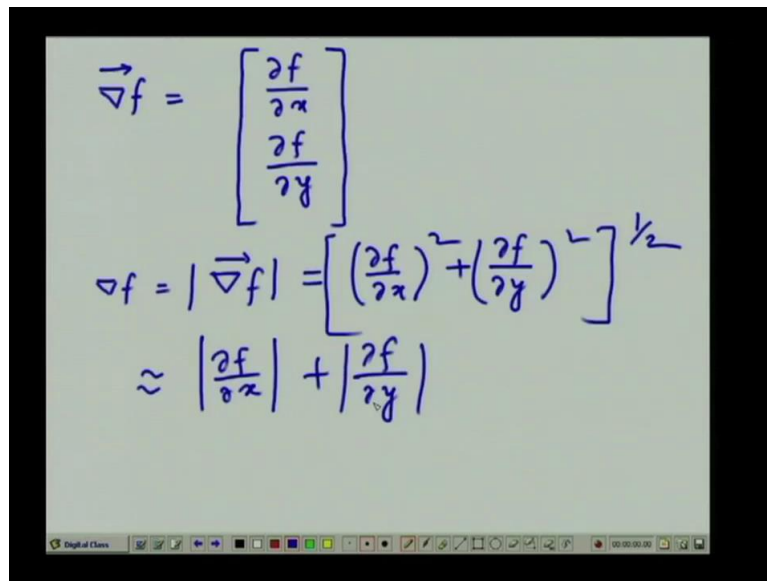 ∇⃗f = [ ∂f/∂x
∂f/∂y ]
∇f = | ∇⃗f | = [ (∂f/∂x)² + (∂f/∂y)² ]^1/2
≈ |∂f/∂x| + |∂f/∂y|
Digital Class 00:00:00.00